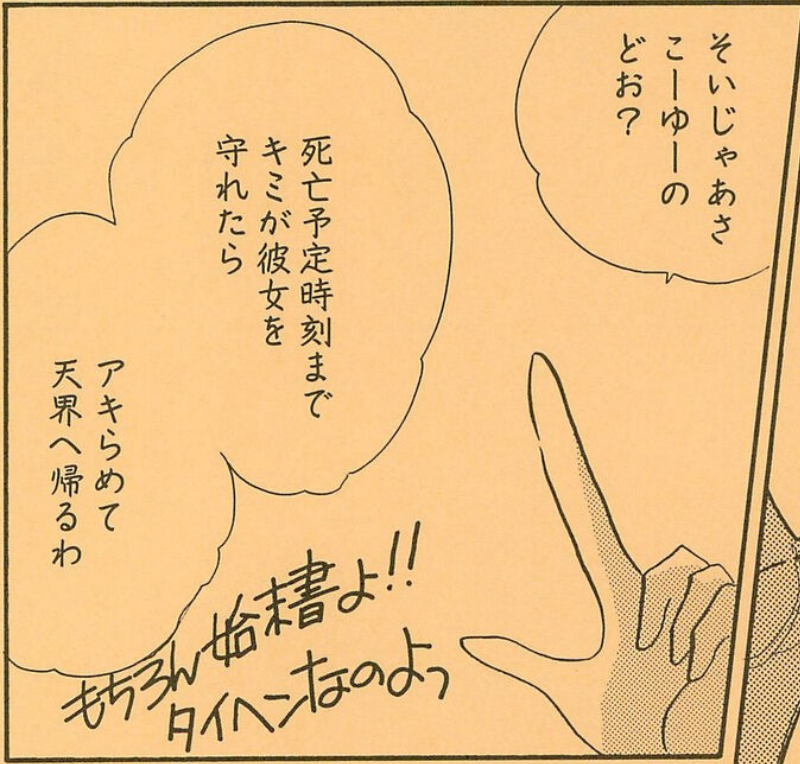 そいじゃあさ
こーゆーの
どお?
死亡予定時刻まで
キミが彼女を
守れたら
アキらめて
天界へ帰るわ
もちろん始末書よ!!
タイヘンなのよっ